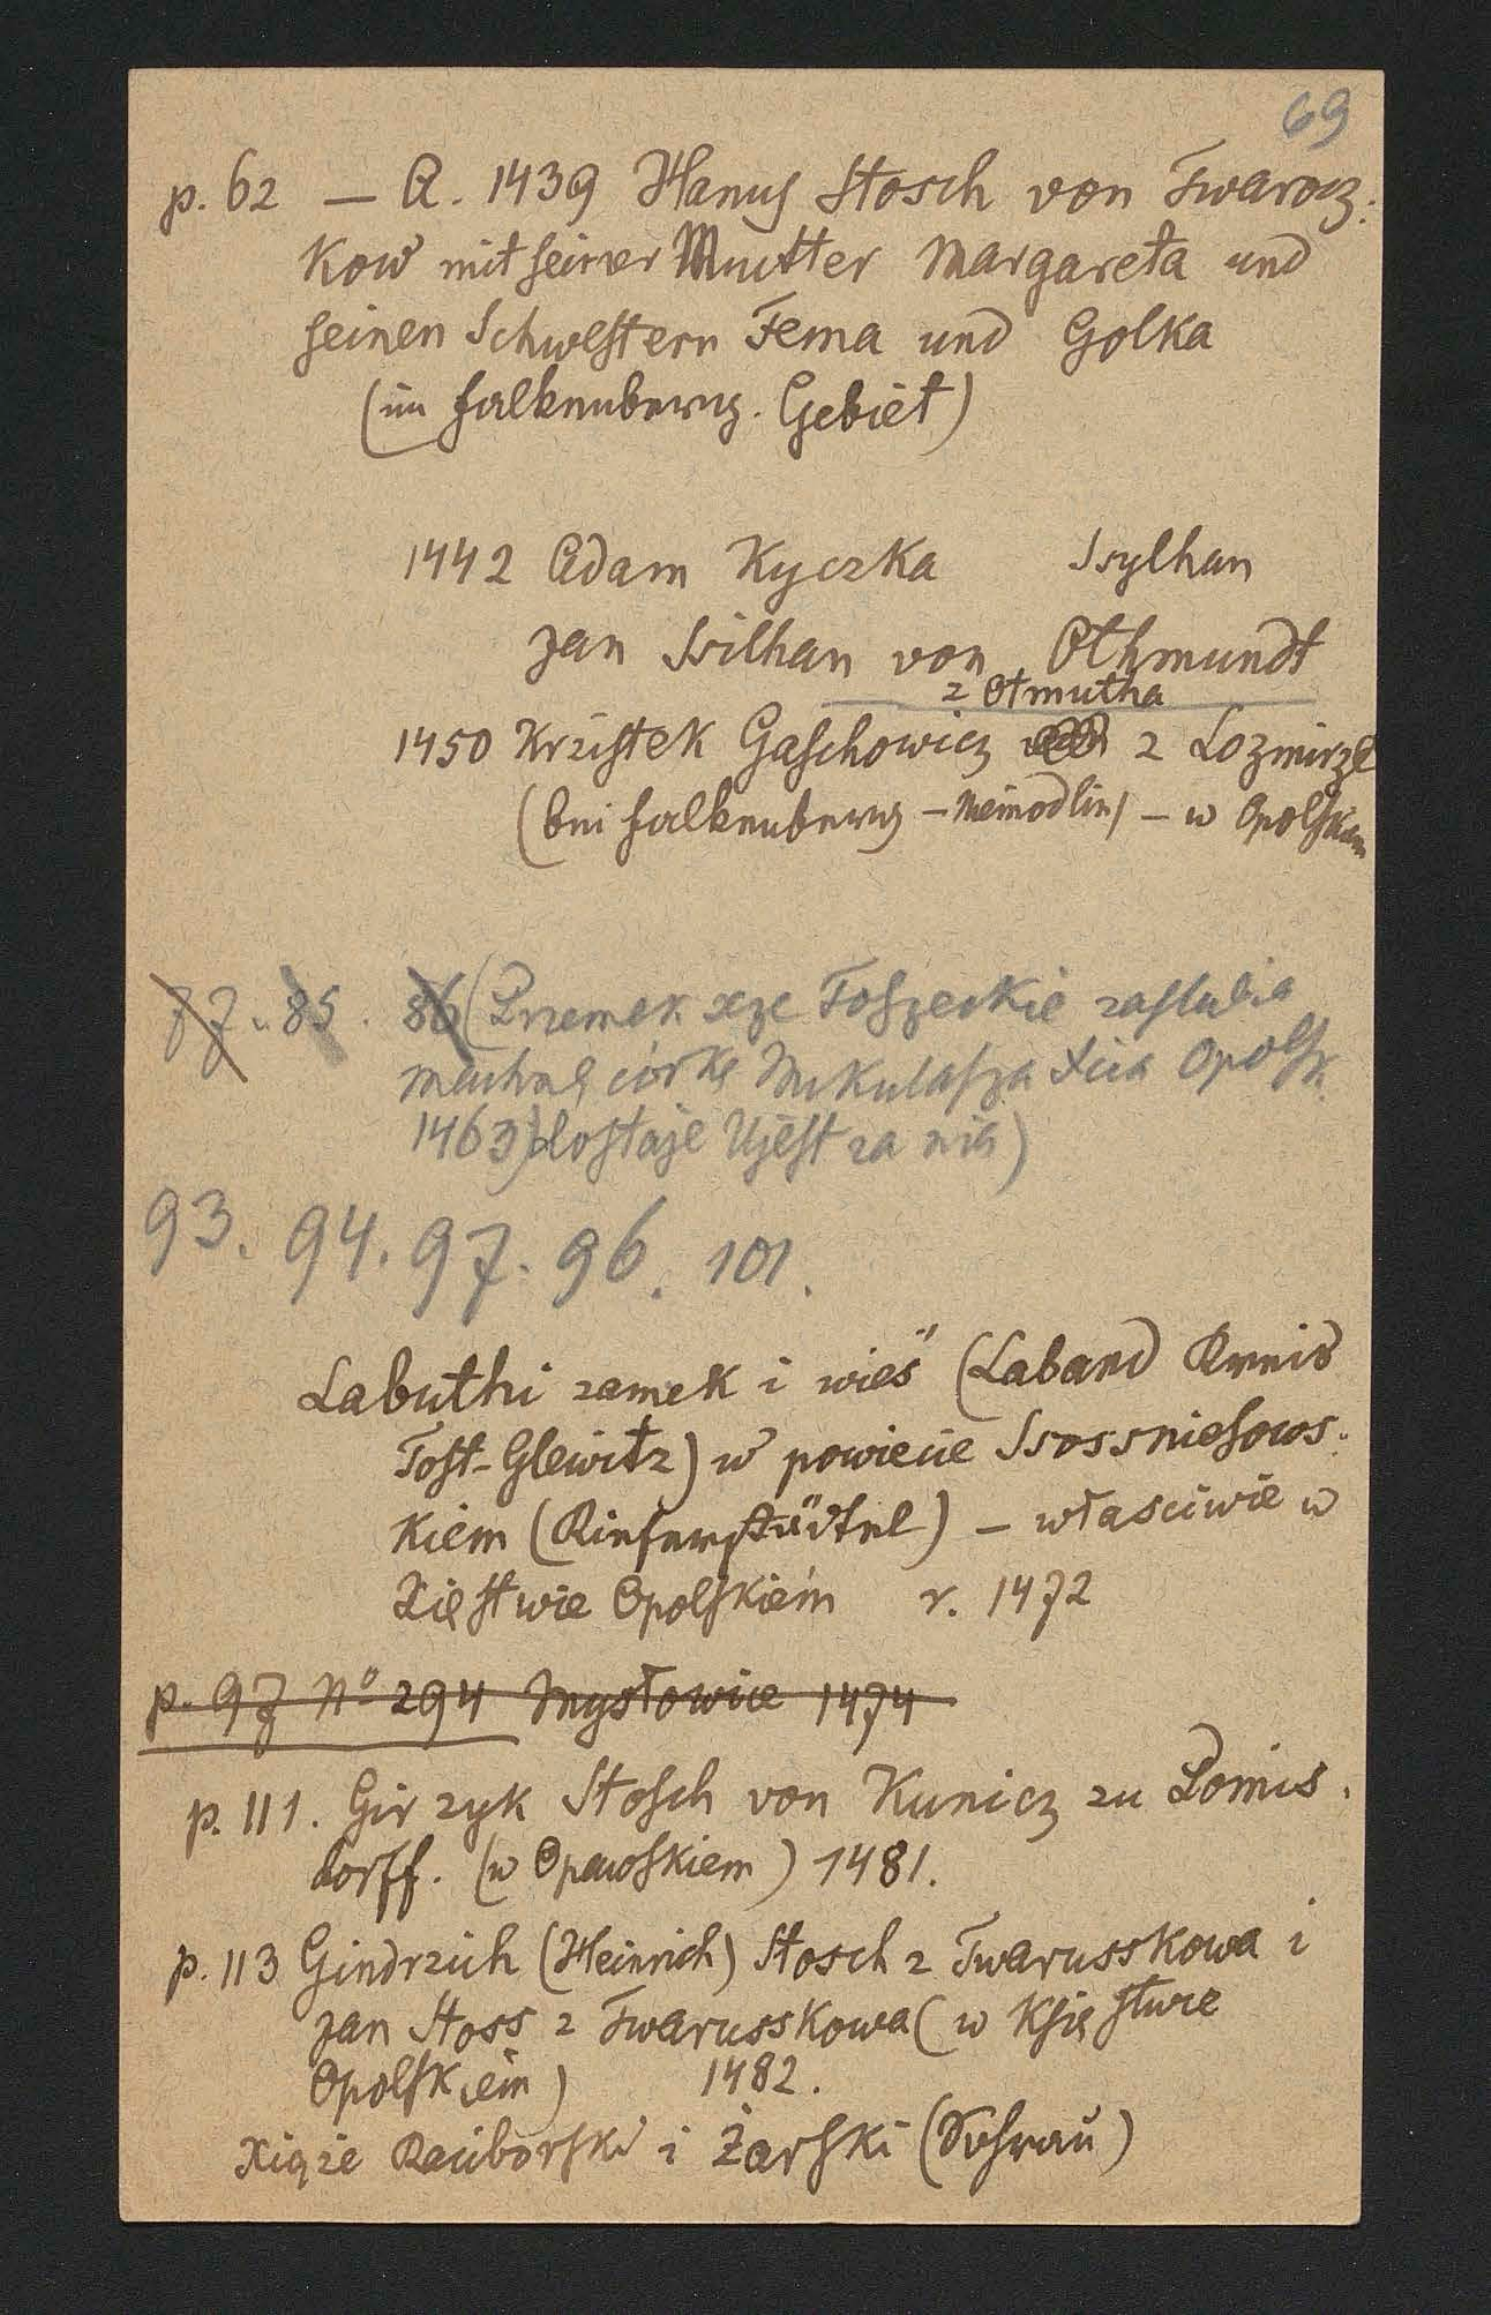 69
p. 62 — A. 1439 Hanus Stosch von Twarocz:
kow mit seiner Mutter Margareta und
seinen Schwestern Fema und Golka
(im Falkenberg. Gebiet)
1442 Adam Kyczka Ssylhan
Jan Ssilhan von Othmundt
z Otmutha
1450 Krzistek Gaschowicz z Lozmirze
(bei Falkenberg – Niemodlin) – w Opolskiem
77. 85. 86 (Przemek xże Toszeckie zaslubia
Machnę córkę Mikulasza Xcia Opolsk.
1463) dostaje Ujest za nią)
93. 94. 97. 96. 101.
Labuthi zamek i wieś" (Laband Kreis
Tost-Gleiwitz) w powiecie Ssossniesows:
kiem (Kieferstädtel) – właściwie w
Xięstwie Opolskiém r. 1472
p. 97 No 294 Mysłowice 1474
p. 111. Girzyk Stosch von Kunicz zu Lomis.
dorff. (w Opawskiem) 1481.
p. 113 Gindrzich (Heinrich) Stosch z Twarusskowa i
Jan Stoss z Twarusskowa (w Księstwie
Opolskiem) 1482.
Xiąże Raciborski i Żarski (Sohrau)